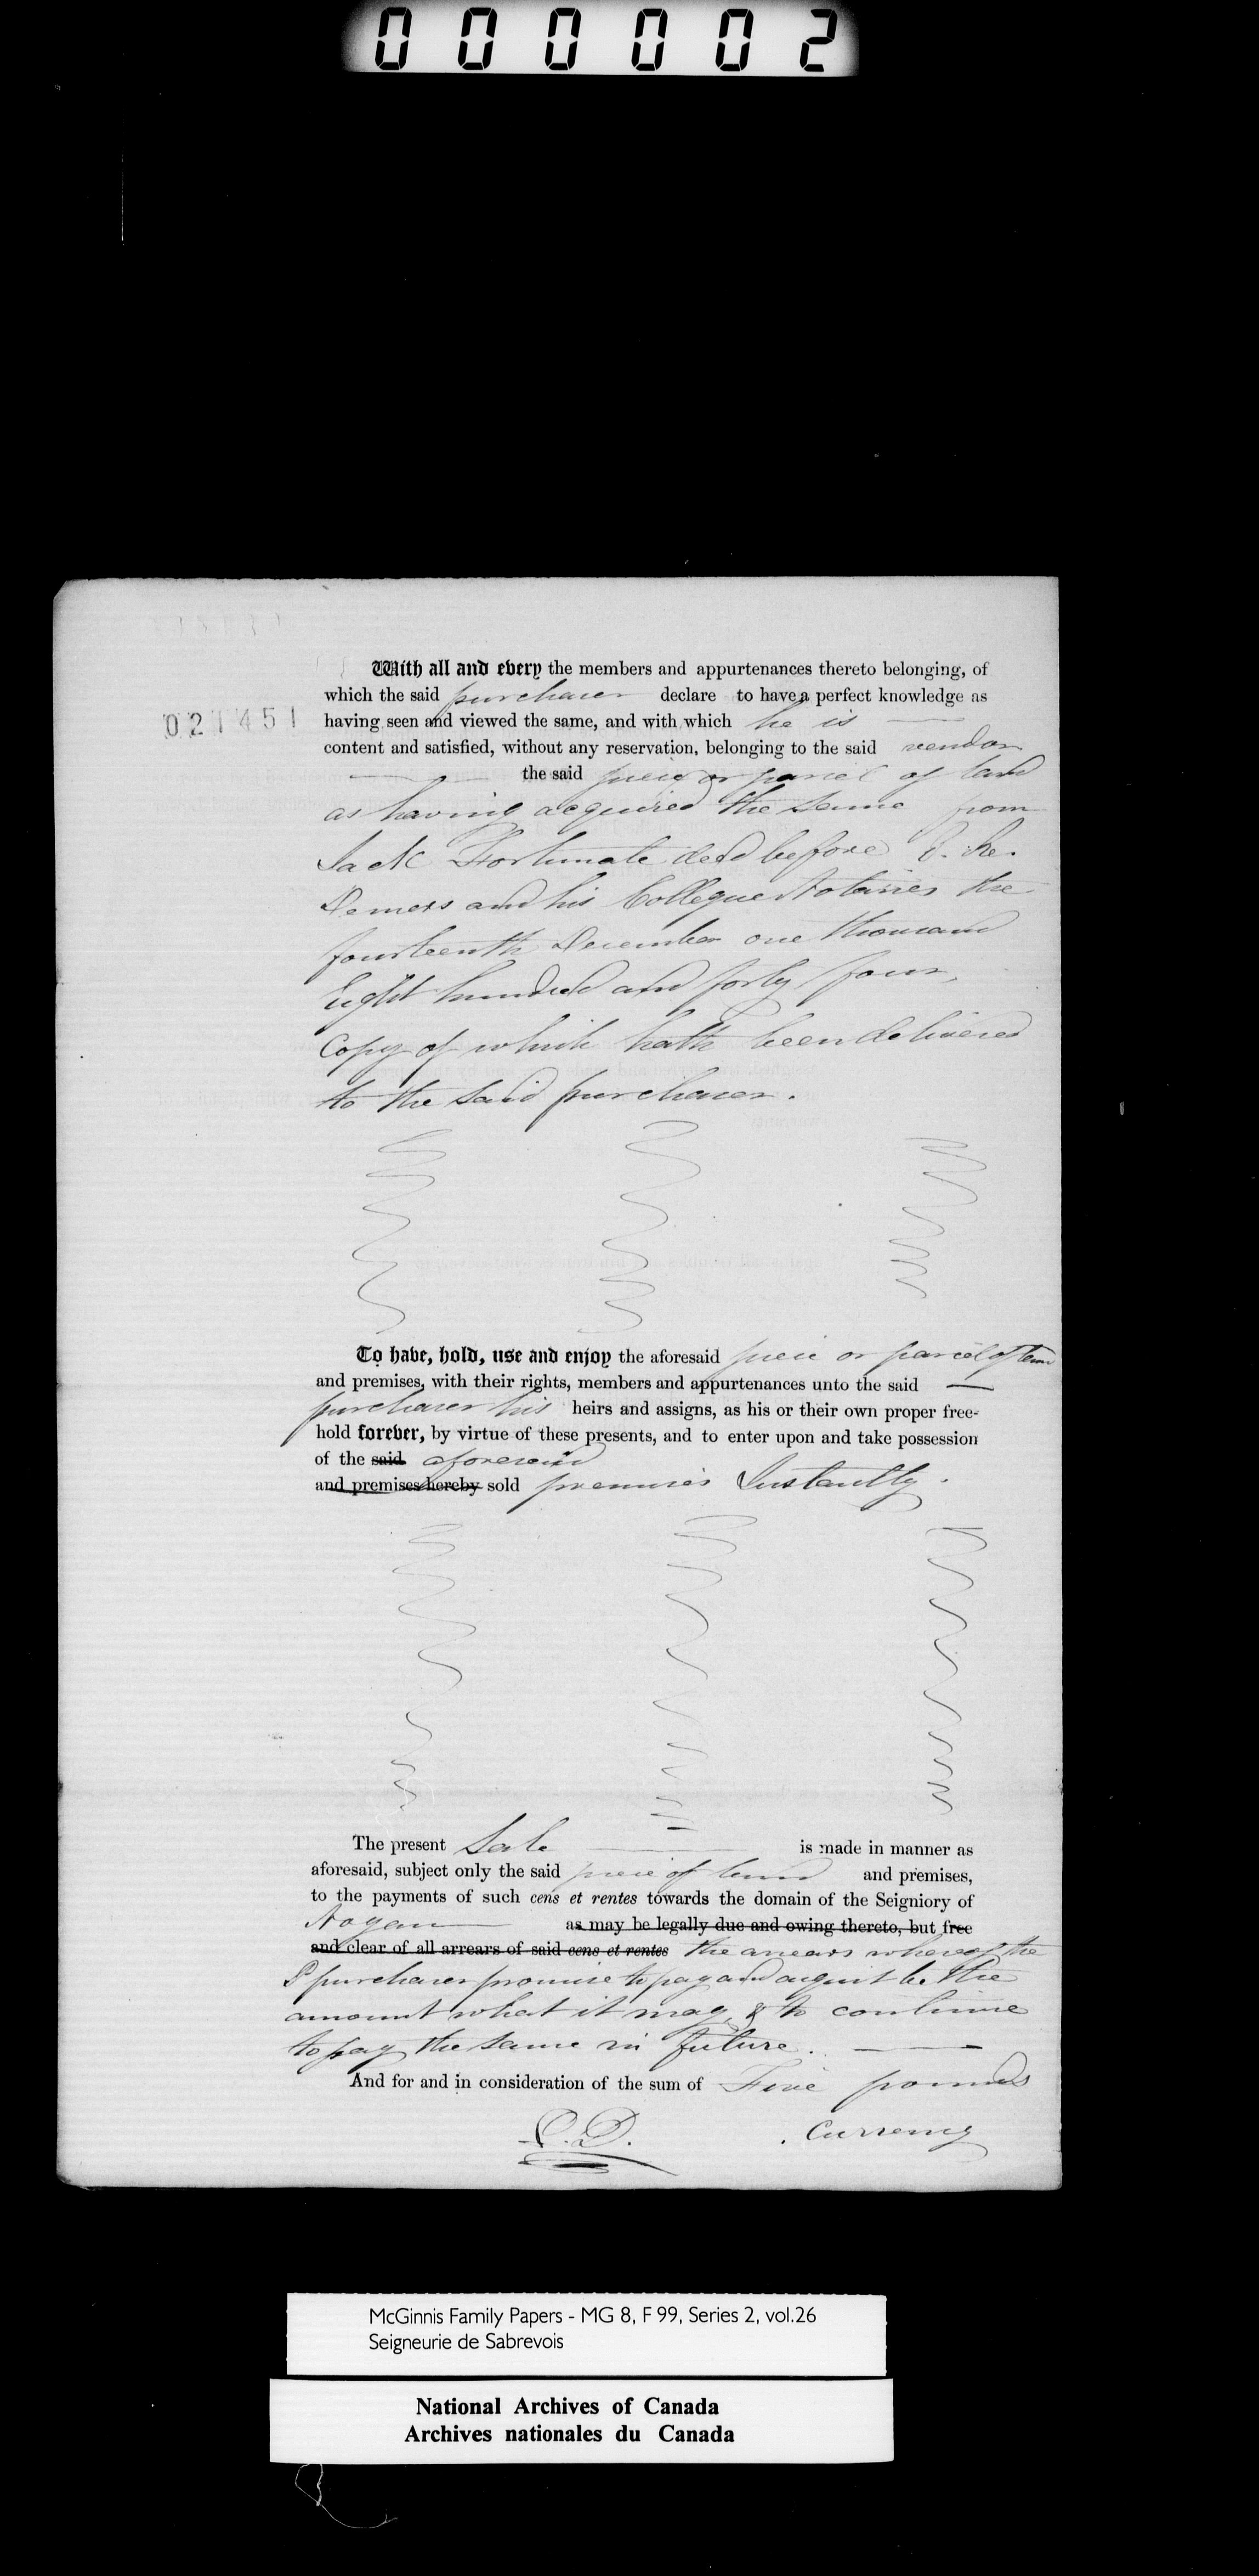 000002
With all and every the members and appurtenances thereto belonging, of
which the said purchaser declare to have a perfect knowledge as
021451
having seen and viewed the same, and with which he is
content and satisfied, without any reservation, belonging to the said vendor
the said piece or parcel of land
as having acquired the same from
Jack Fortunate deed before
Demers and his Collegue Notaries the
fourteenth December one thousand
Eight hundred and forty four,
Copy of which hath been delivered
to the said purchaser.
To have, hold, use and enjoy the aforesaid piece or parcel of land
and premises, with their rights, members and appurtenances unto the said
purchaser his heirs and assigns, as his or their own proper free-
hold forever, by virtue of these presents, and to enter upon and take possession
of the said aforesaid
and premises hereby sold premises Instantly.
The present Sale is made in manner as
aforesaid, subject only the said piece of land and premises,
to the payments of such cens et rentes towards the domain of the Seigniory of
Noyan as may be legally due and owing thereto, but free
and clear of all arrears of said cens et rentes the arrears whereof the
Sd purchaser promise to pay and acquit be the
amount what it may, & to continue
to pay the same in future.
And for and in consideration of the sum of Five pounds
Currency
McGinnis Family Papers - MG 8, F 99, Series 2, vol.26
Seigneurie de Sabrevois
National Archives of Canada
Archives nationales du Canada